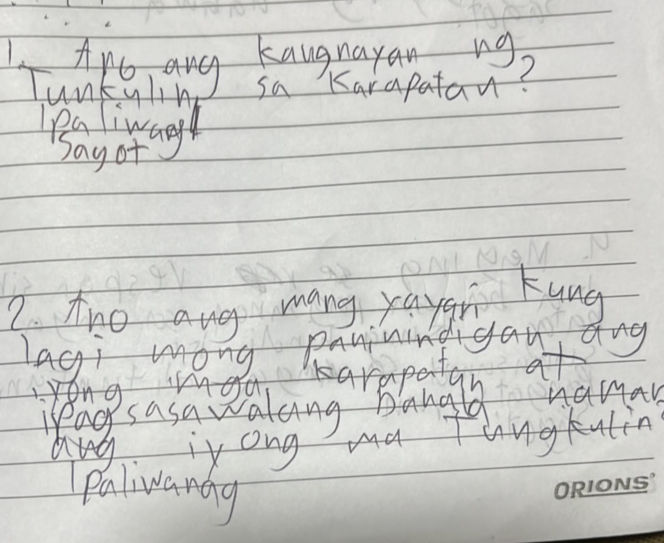 1. Ano ang kaugnayan ng
Tunkulin sa Karapatan?
Ipaliwang
Sagot
2. Ano ang mang yayari kung
lagi mong paninindigan ang
iyong mga karapatan at
ipagsasawalang bahala naman
ang iyong ma Tungkulin
Ipaliwanag
ORIONS